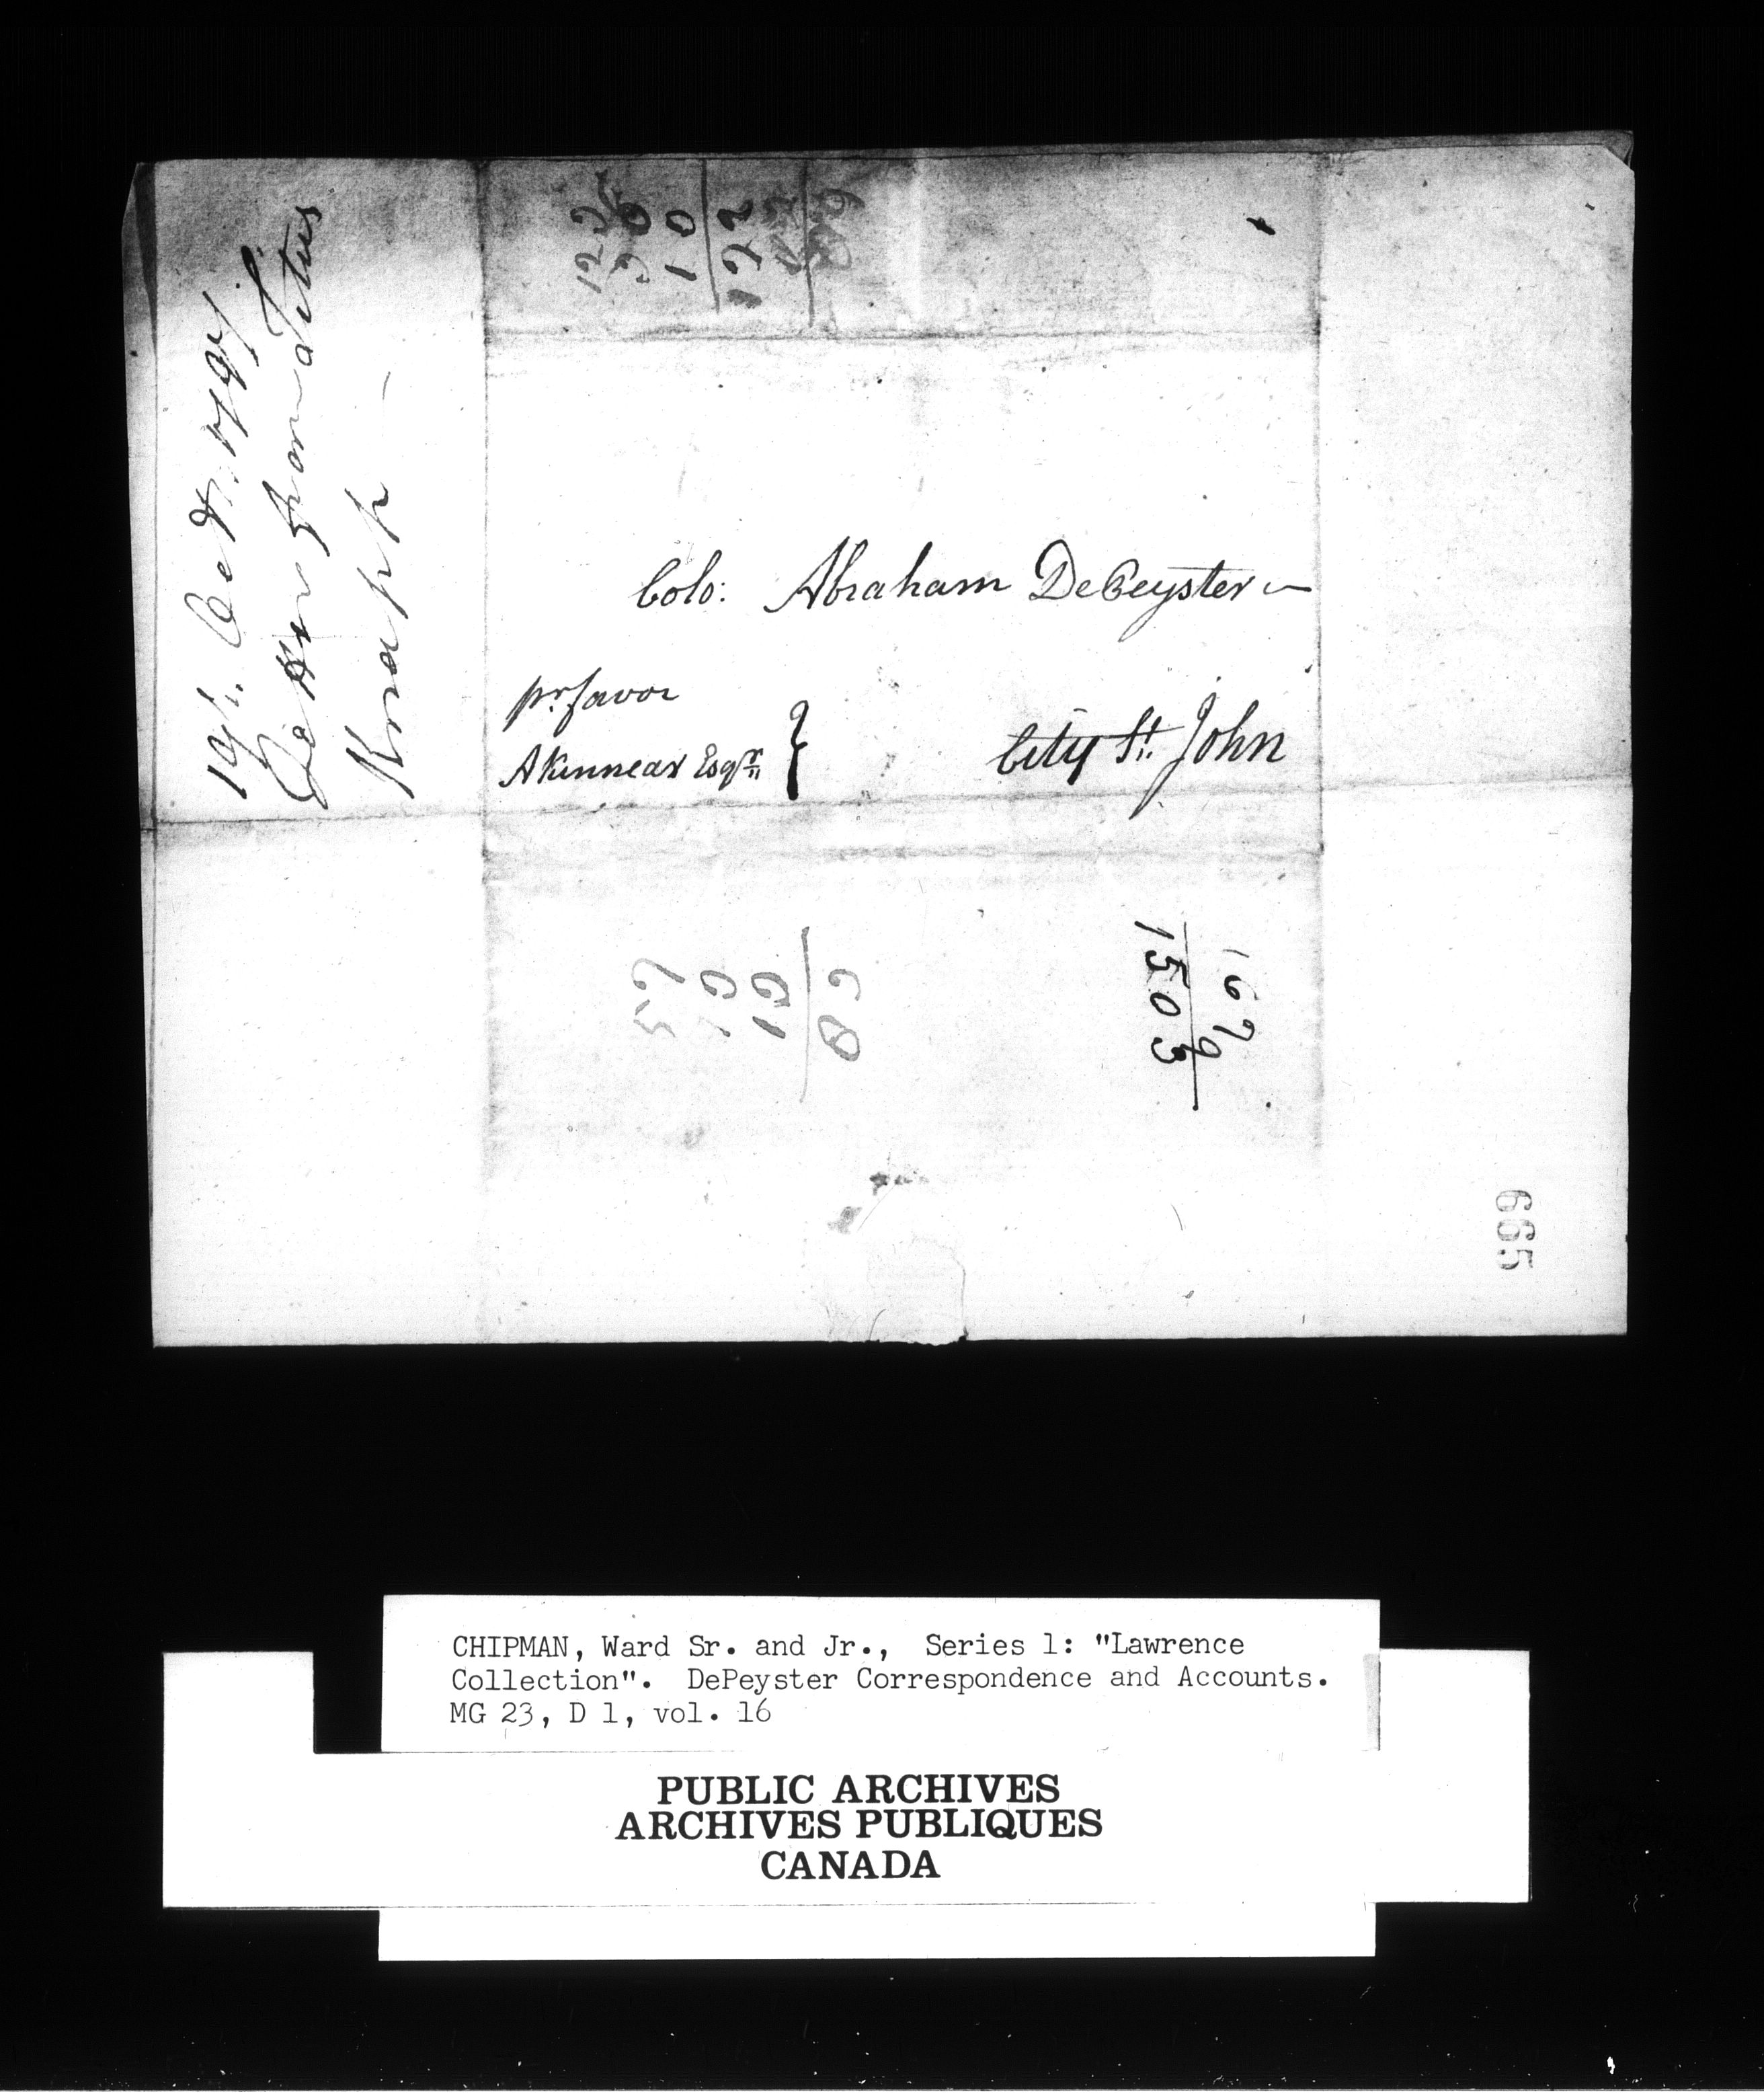 19th. Octr. 1797
Letter from Titus
Knapp —
Colo: Abraham DePeyster —
pr. favor
A Kinnear Esqr. }
City St. John
10
172
57
10
89
167
1503
665
CHIPMAN, Ward Sr. and Jr., Series 1: "Lawrence
Collection". DePeyster Correspondence and Accounts.
MG 23, D 1, vol. 16
PUBLIC ARCHIVES
ARCHIVES PUBLIQUES
CANADA